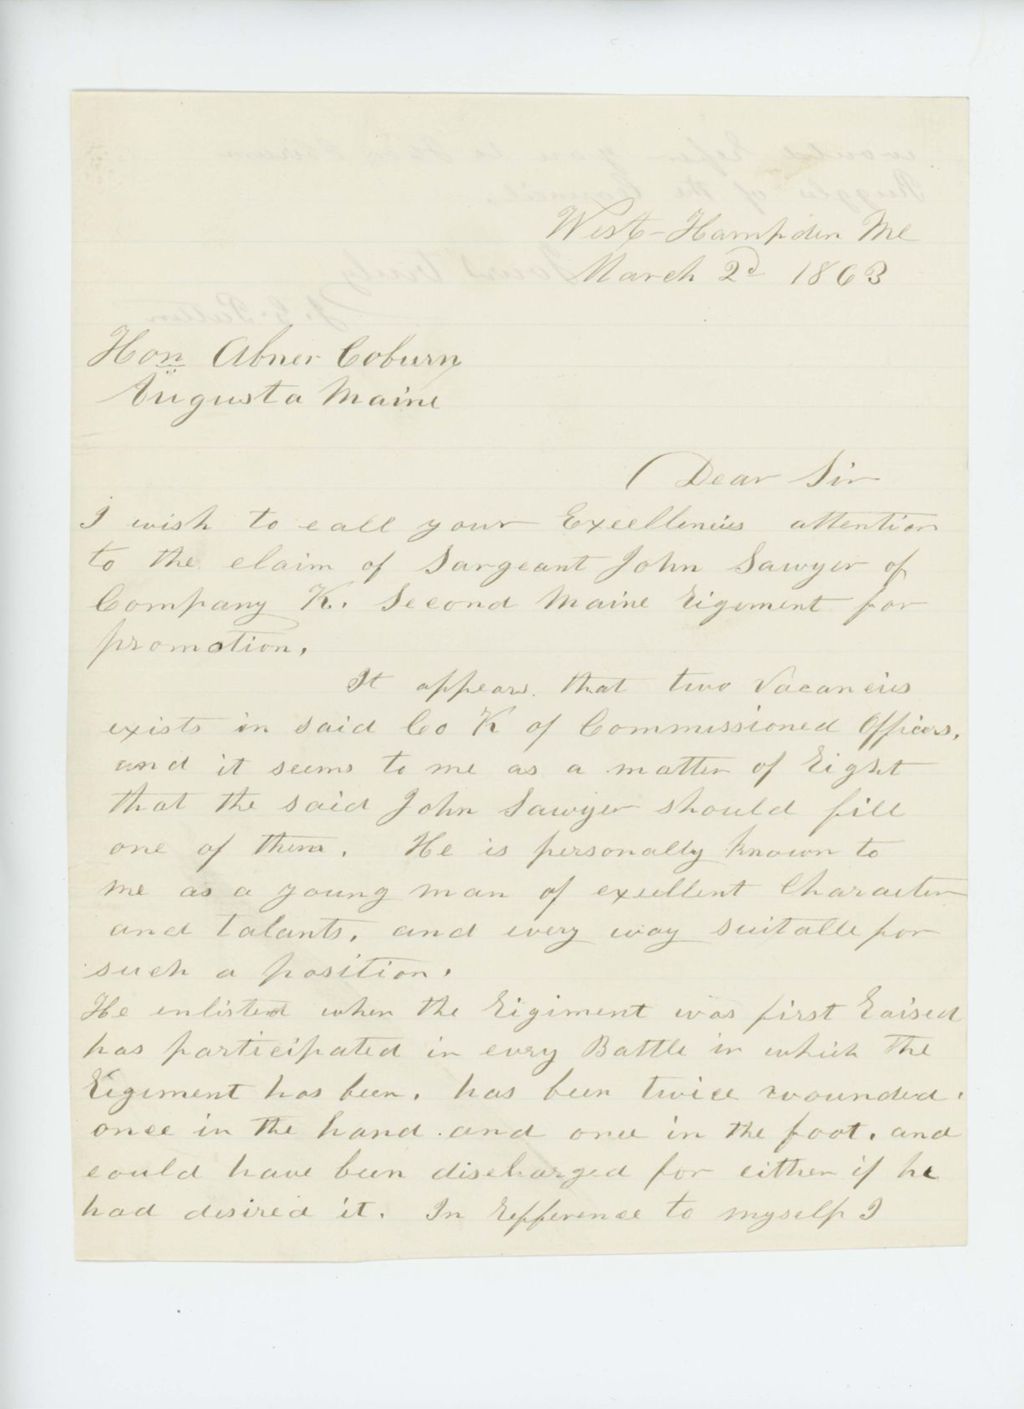 West-Hampden Me
March 2d 1863
Hon Abner Coburn
Augusta Maine
Dear Sir
I wish to call your Excellencies attention
to the claim of Sargeant John Sawyer of
Company K. Second Maine Regiment for
promotion.
It appears that two Vacancies
exists in said Co K of Commissioned Officers,
and it seems to me as a matter of Right
that the said John Sawyer should fill
one of them. He is personally known to
me as a young man of excellent Character
and talants, and every way suitable for
such a position.
He enlisted when the Rigiment was first Raised
has participated in every Battle in which the
Regiment has been, has been twice wounded,
once in the hand and once in the foot, and
could have been discharged for either if he
had desired it. In Refference to myself I
would refer you to
Ruggles of the Council.
Yours truly